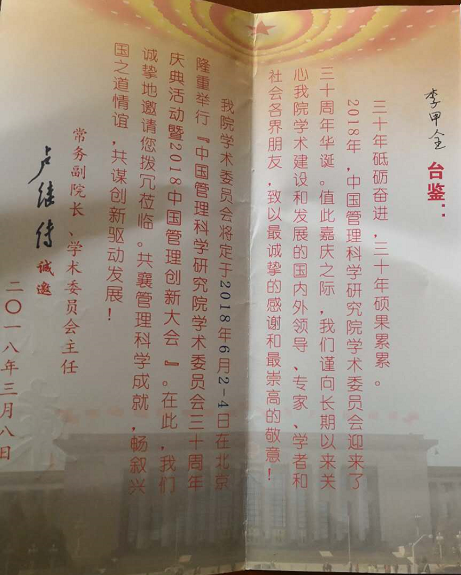 李甲全 台鉴：
三十年砥砺奋进，三十年硕果累累。
2018年，中国管理科学研究院学术委员会迎来了
三十周年华诞。值此嘉庆之际，我们谨向长期以来关
心我院学术建设和发展的国内外领导、专家、学者和
社会各界朋友，致以最诚挚的感谢和最崇高的敬意！
我院学术委员会将定于2018年6月2-4日在北京
隆重举行『中国管理科学研究院学术委员会三十周年
庆典活动暨2018中国管理创新大会』。在此，我们
诚挚地邀请您拨冗莅临。共襄管理科学成就，畅叙兴
国之道情谊，共谋创新驱动发展！
常务副院长、学术委员会主任
卢继传 诚邀
二〇一八年三月八日